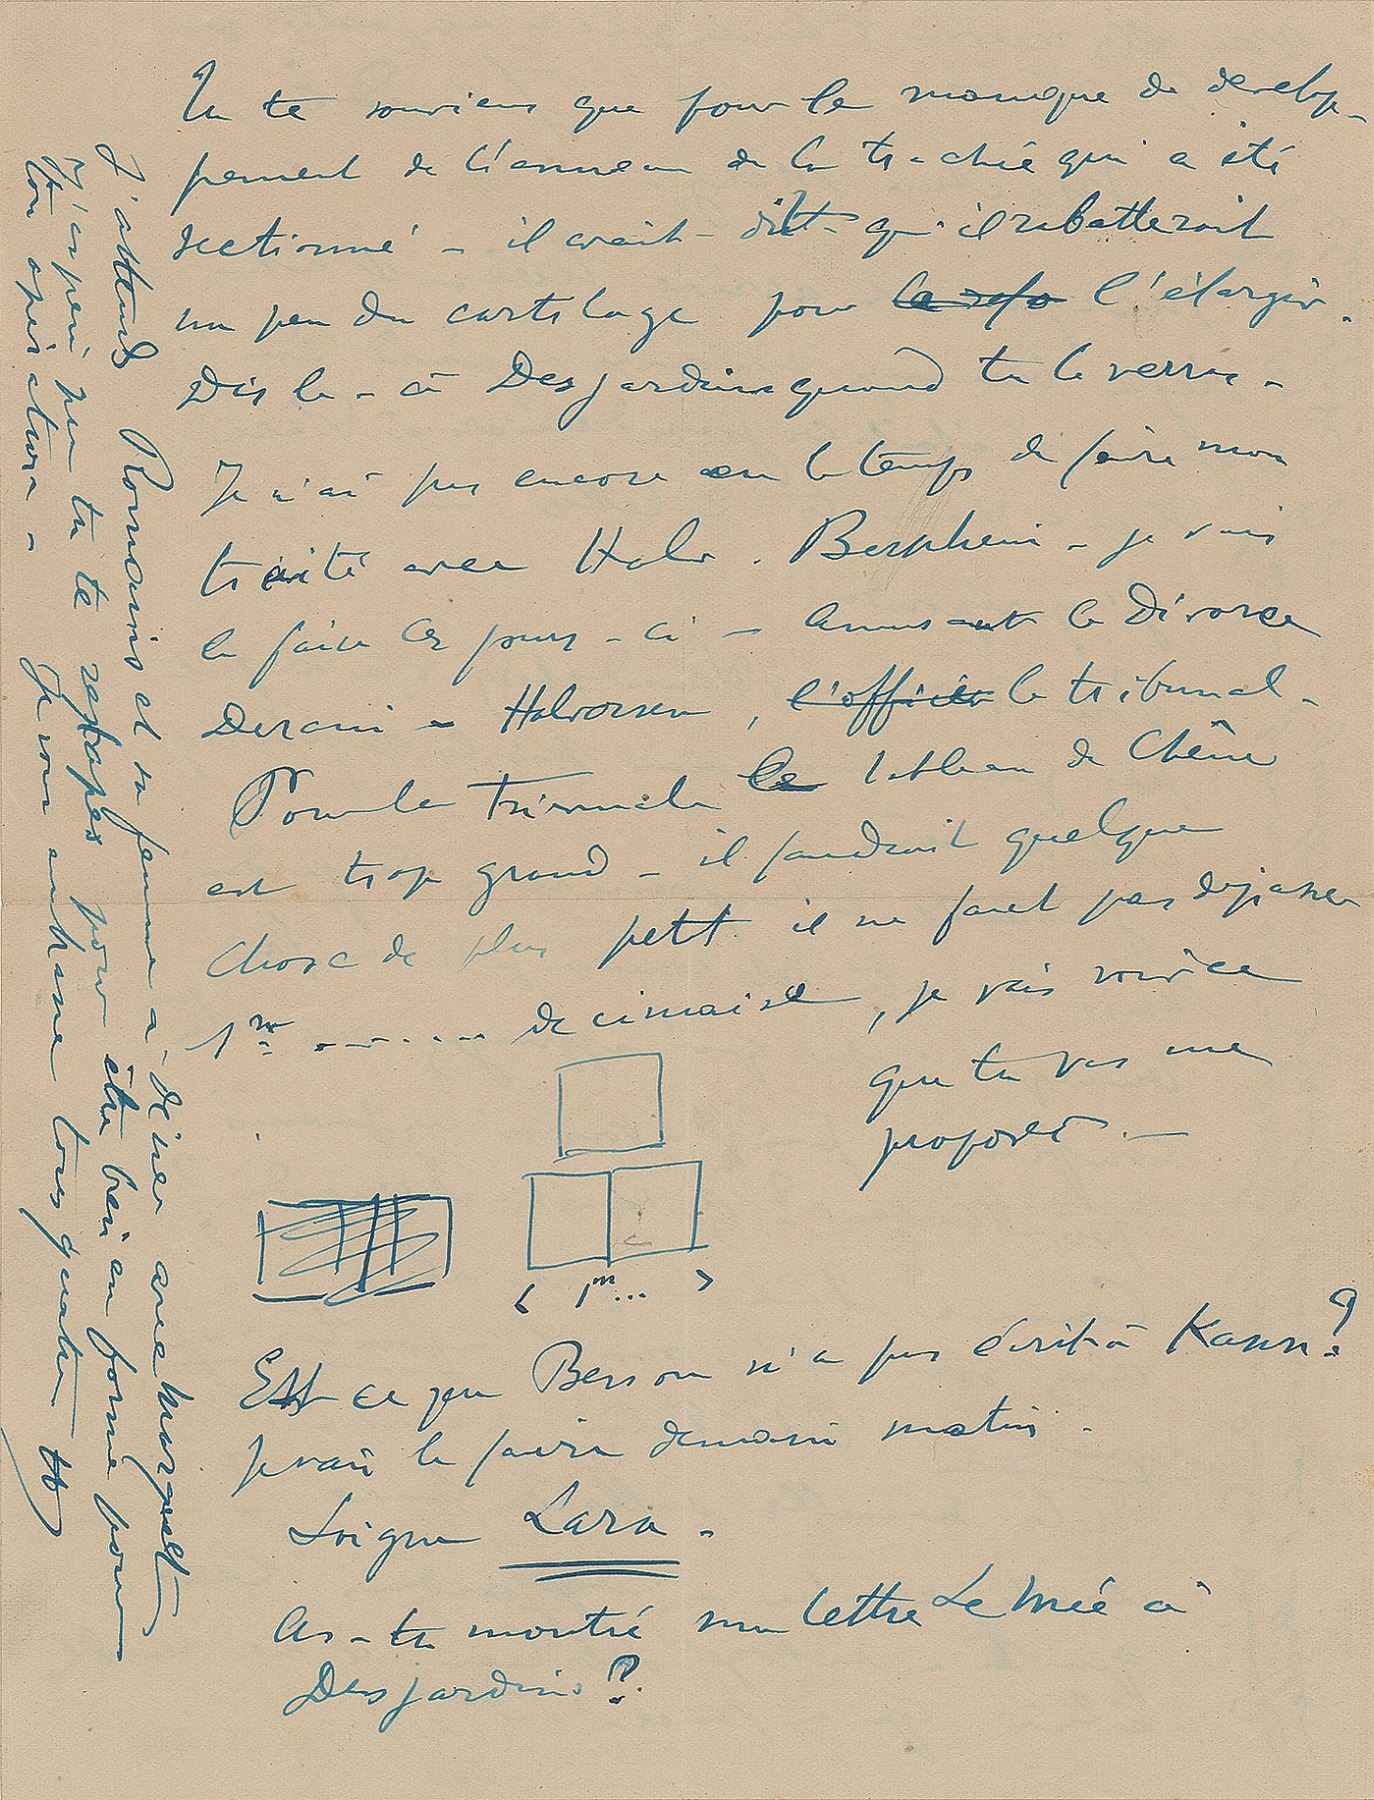 Tu te souviens que pour le manque de dévelop-
pement de l'anneau de la trachée qui a été
sectionné - il avait dit qu'il rabatterait
un peu du cartilage pour l'élargir.
Dis le - à Desjardins quand tu le verras -
Je n'ai pas encore eu le temps de faire mon
traité avec Halv. Bernheim - je vais
le faire ces jours-ci - Amusant le Divorce
Derain - Halvorsen, l'officier le tribunal -
Pour la Triennale le tableau de Chêne
est trop grand - il faudrait quelque
chose de plus petit. il ne faut pas dépasser
1m. ....... de cimaise, je vais voir ce
que tu vas me
proposer. —
1m...
Est ce que Besson n'a pas écrit à Kann?
Je vais le faire demain matin.
Soigne Lara.
As-tu montré ma lettre Le Mée à
Desjardins?
J'attends Romains et sa femme à dîner avec Marquet
J'espère que tu te retapes pour être bien en forme pour
ton opération - Je vous embrasse tous quatre H